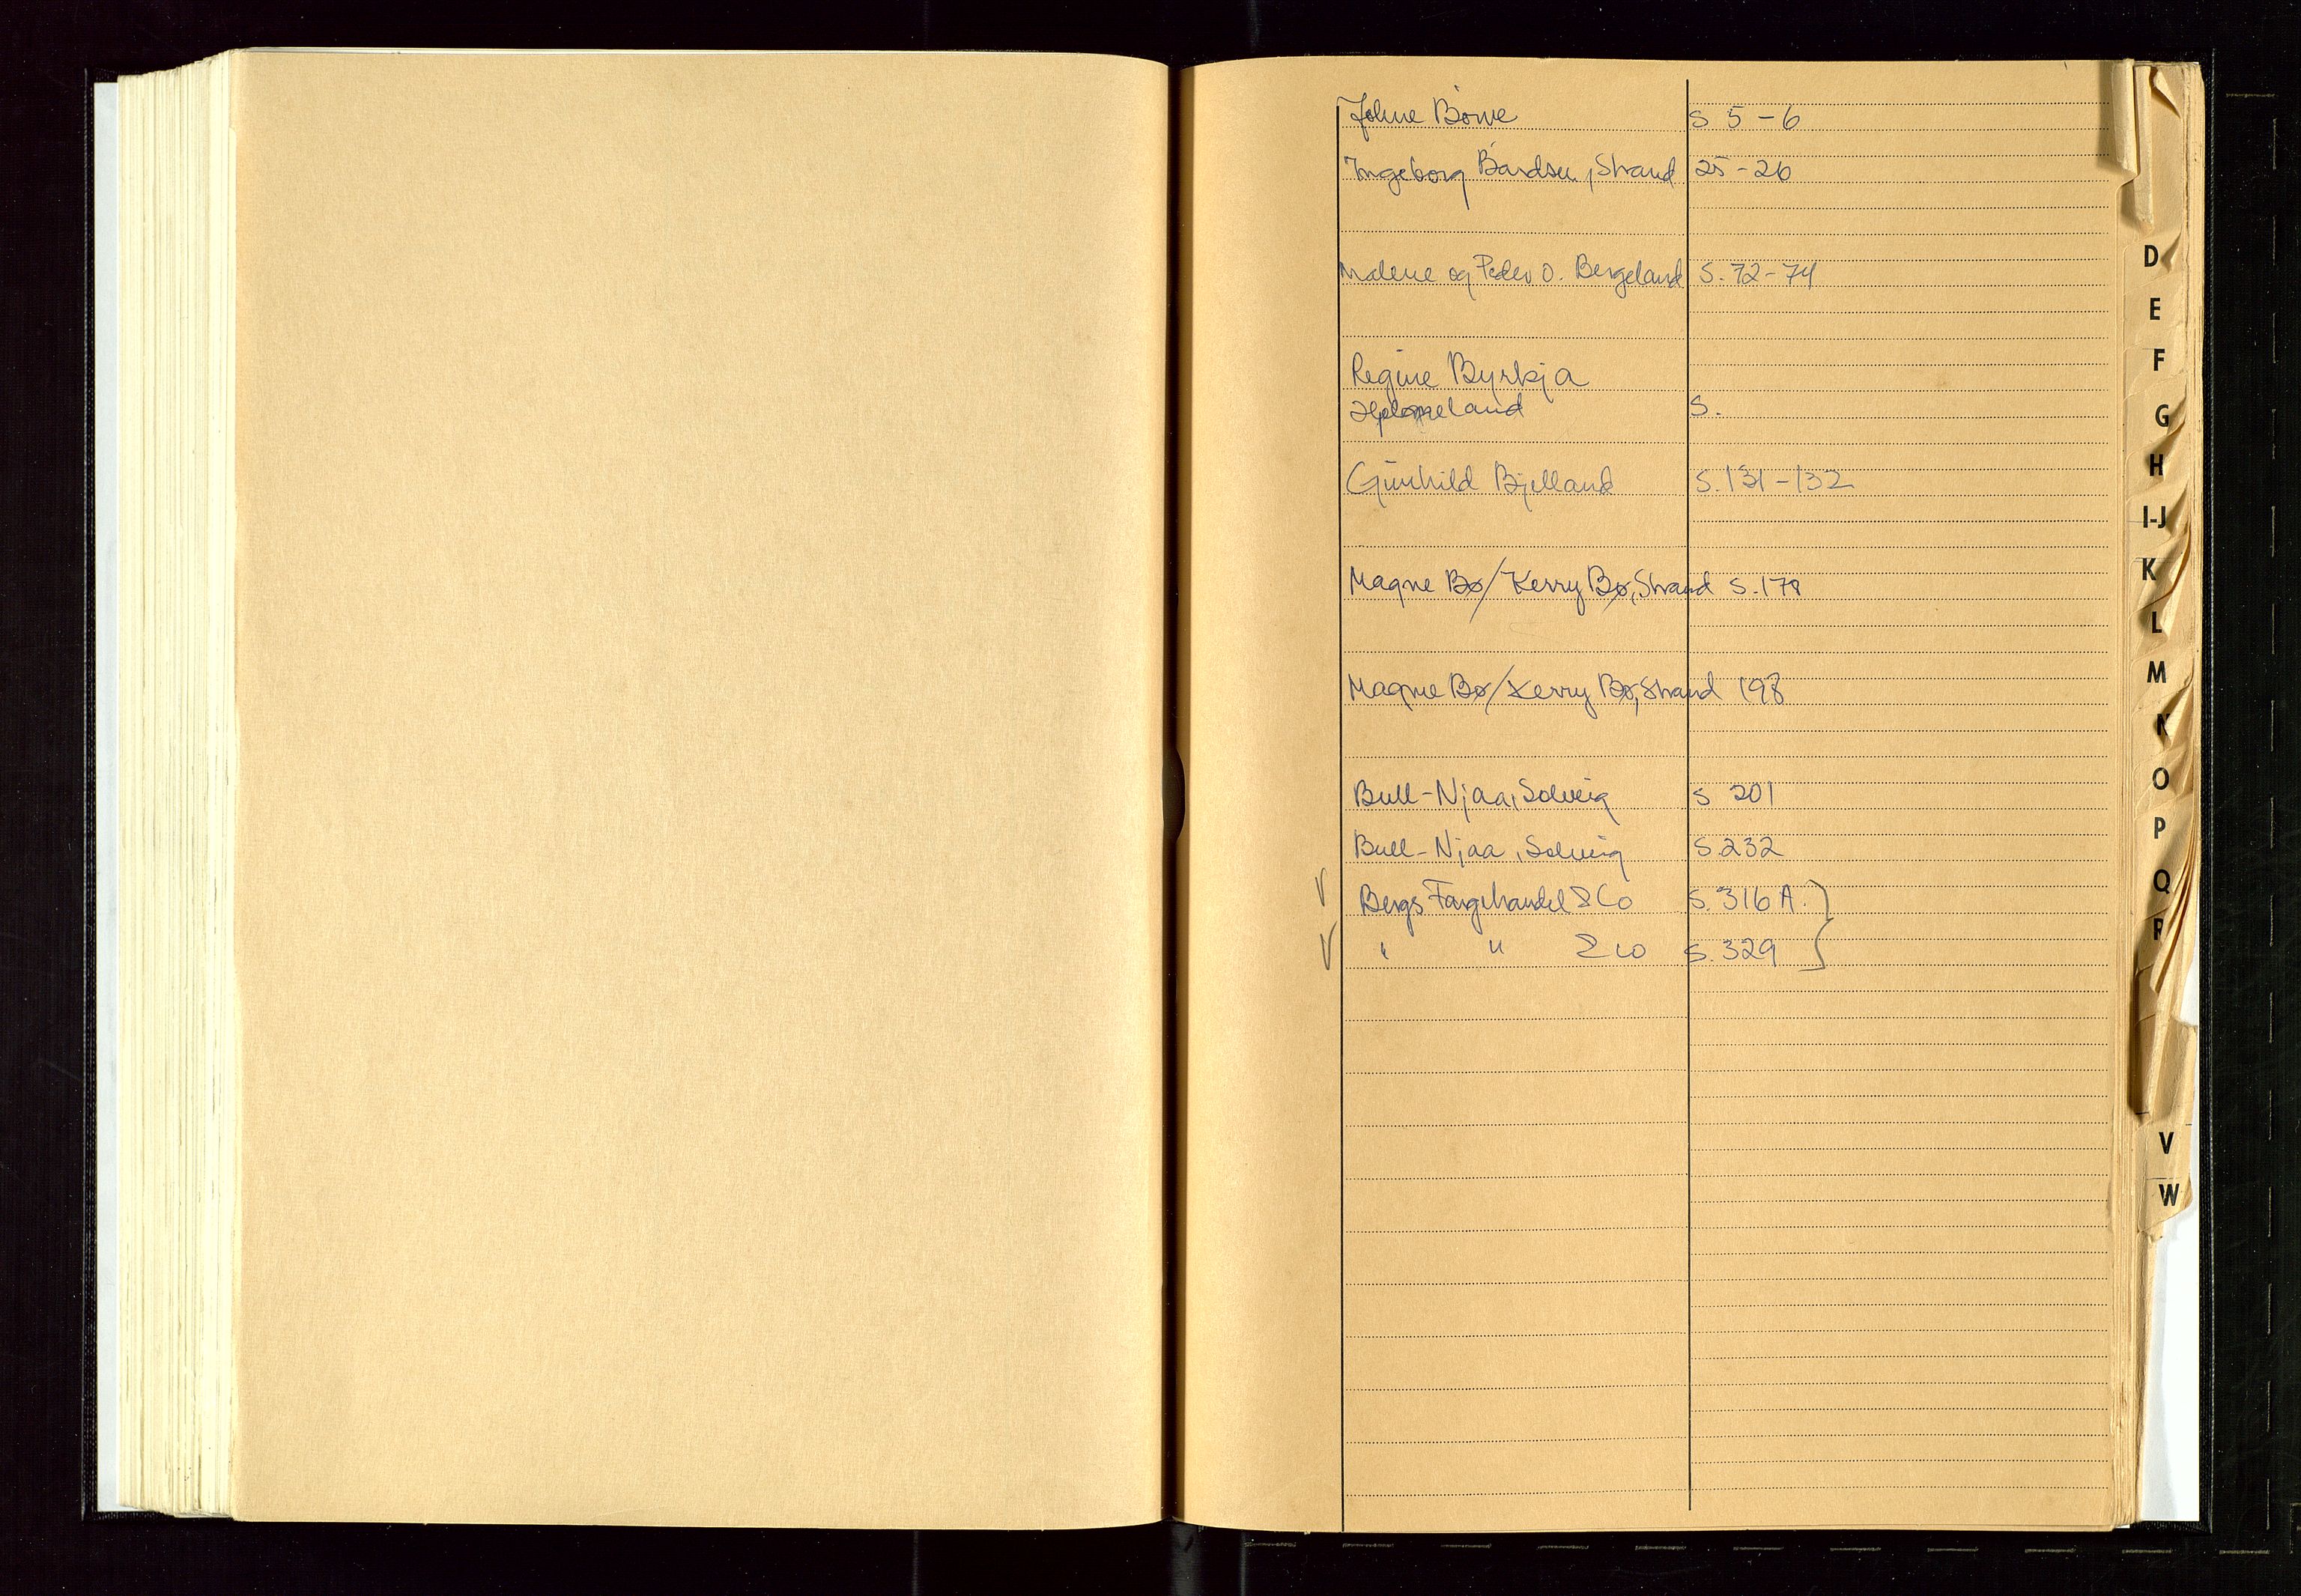 Johne Børve s 5-6
Ingeborg Bårdsen, Strand 25-26
Malene og Peder O. Bergeland s. 72-74
Regine Byrkja
Hjelmeland s.
Gunhild Bjelland s. 131-132
Magne Bø/Kerry Bø, Strand s. 178
Magne Bø/Kerry Bø, Strand 198
Bull-Njaa, Solveig s 201
Bull-Njaa, Solveig s. 232
Bergs Fargehandel & Co s. 316 A.
" " & Co s. 329
D
E
F
G
H
I-J
K
L
M
N
O
P
Q
R
V
W